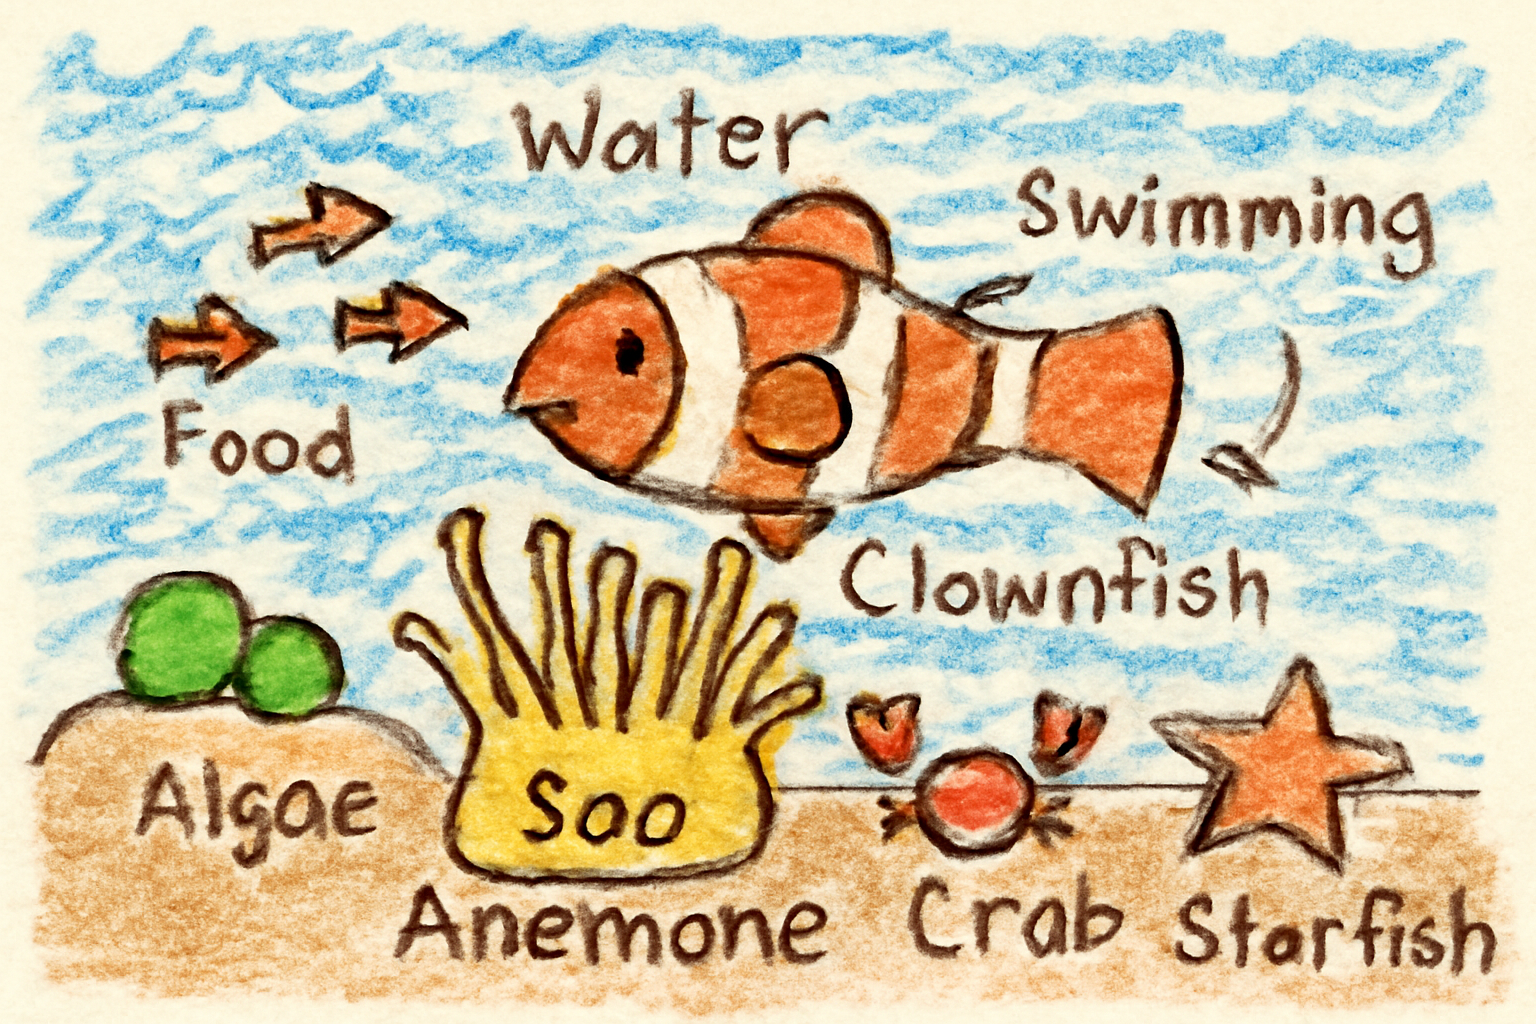 Water
Swimming
Food
Clownfish
Algae
Sao
Anemone
Crab
Starfish